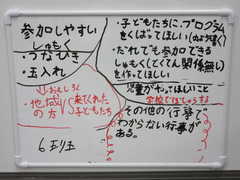 参加しやすい
しゅもく
・うなひき
・玉入れ
・子どもたちに、プログラム
をくばってほしい
・だれでも参加できる
しゅもく
関係無し
を作ってほしい
おもしろく
・地域
の方
来てくれた
子どもたち
児童がやってほしいこと
学校でほしゅうする
その他の行事で
わからない行事が
ある。
6班